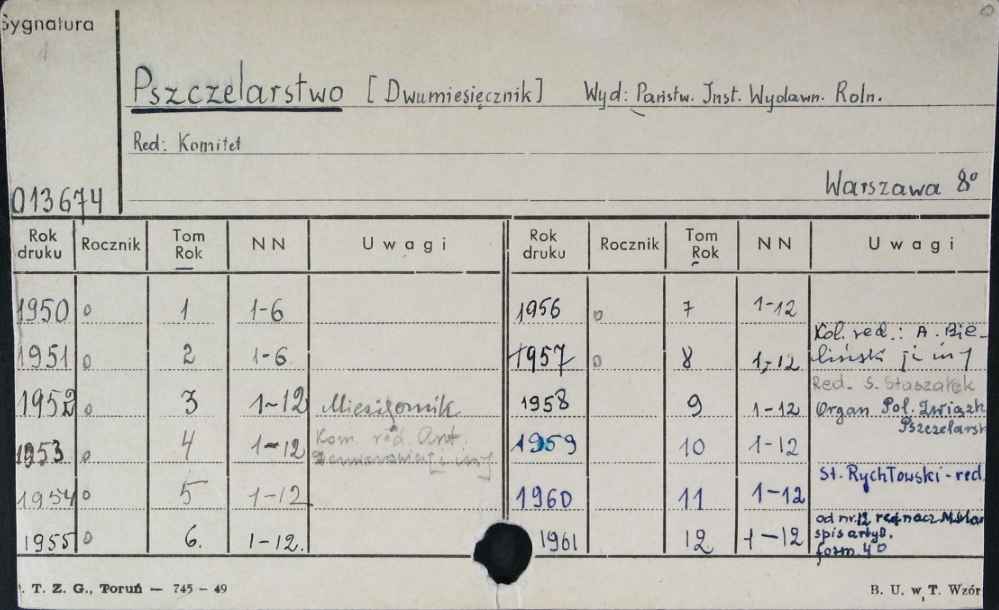 Sygnatura
Pszczelarstwo [Dwumiesięcznik] Wyd: Państw. Inst. Wydawn. Roln.
Red: Komitet
013674 Warszawa 8°
Rok druku Rocznik Tom Rok NN Uwagi Rok druku Rocznik Tom Rok NN Uwagi
1950 o 1 1-6 1956 o 7 1-12
1951 o 2 1-6 1957 o 8 1-12 Kol. red.: A. Bieliński [i in]
1952 o 3 1-12 Miesięcznik 1958 9 1-12 Red. S. Organ Pol. Związk Pszczelarsk
1953 o 4 1-12 Kom. red. Ant. [i in] 1959 10 1-12
1954 o 5 1-12 1960 11 1-12 St. Rychłowski - red.
1955 o 6. 1-12. 1961 12 1-12 od nr. 12 red nacz form. 4°
T. Z. G., Toruń — 745 - 49 B. U. w T. Wzór